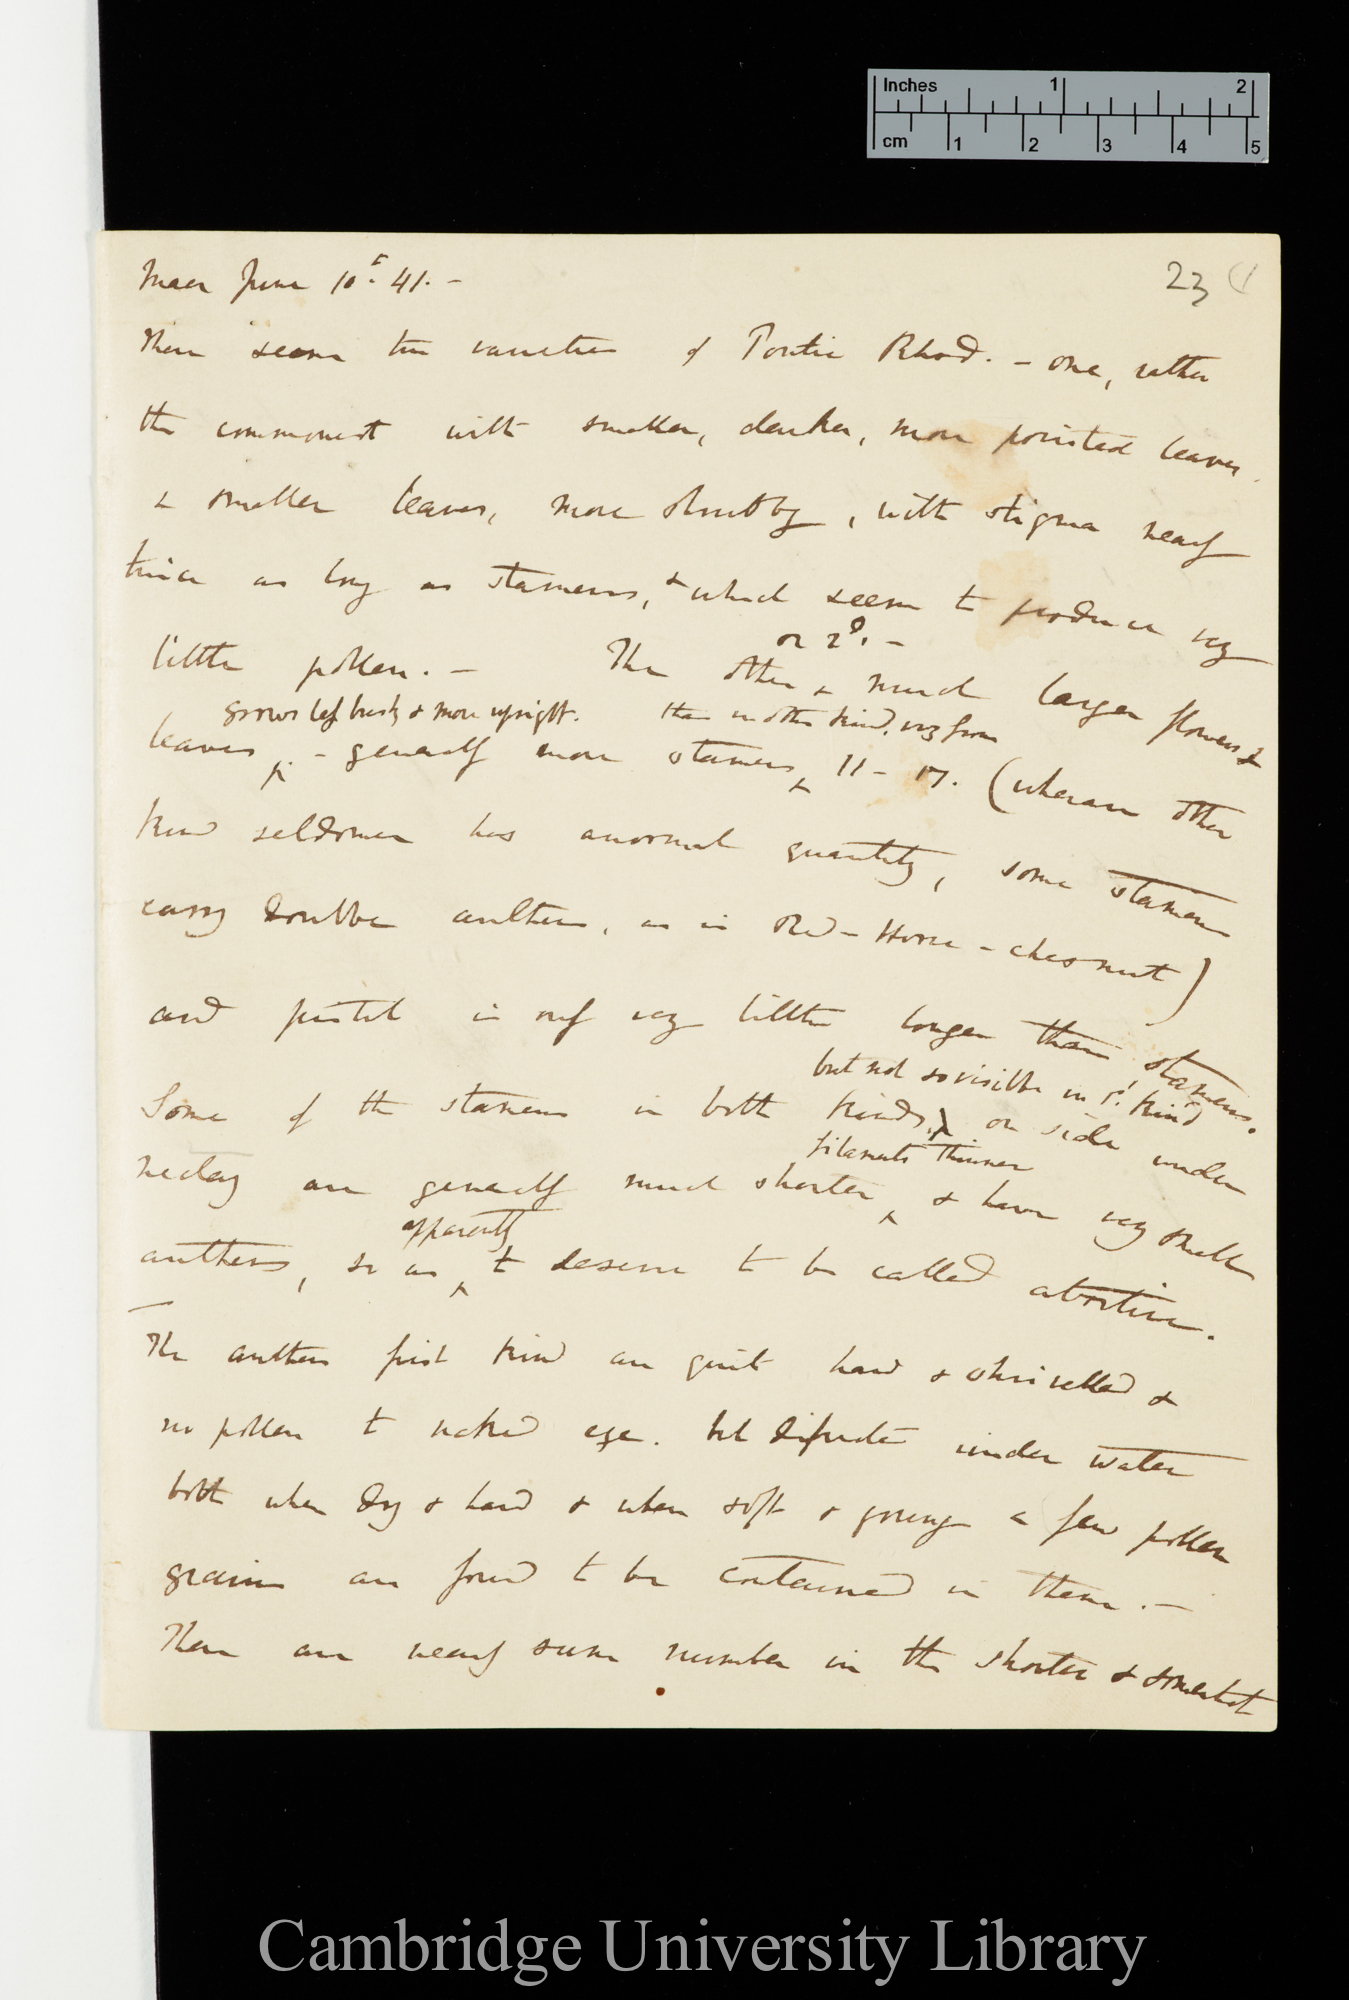 Inches 1 2
cm 1 2 3 4 5
Maer June 10th. 41. —
23 (1
There seem two varieties of Pontic Rhod. — one, rather
the commonest with smaller, darker, more pointed leaves
& smaller leaves, more shrubby, with stigma nearly
twice as long as stamens, & which seem to produce very
little pollen. — The other or 2d. — & much larger flowers &
leaves, grows less bushy & more upright. — generally more stamens than in other kind, very from 11 – 17. (whereas other
kind seldomer has anormal quantity, some stamens
carry double anthers, as in Red – Horse – chesnut)
and pistil is only very little longer than stamens.
Some of the stamens in both kinds, but not so visible in 1st. kind on side under
nectary are generally much shorter filaments thinner & have very small
anthers, so as apparently to deserve to be called abortive.
The anthers first kind are quite hard & shrivelled &
no pollen to naked eye. but dissected under water
both when dry & hard & when soft & young a few pollen
grains are found to be contained in them. —
There are nearly same number in the shorter & somewhat
Cambridge University Library